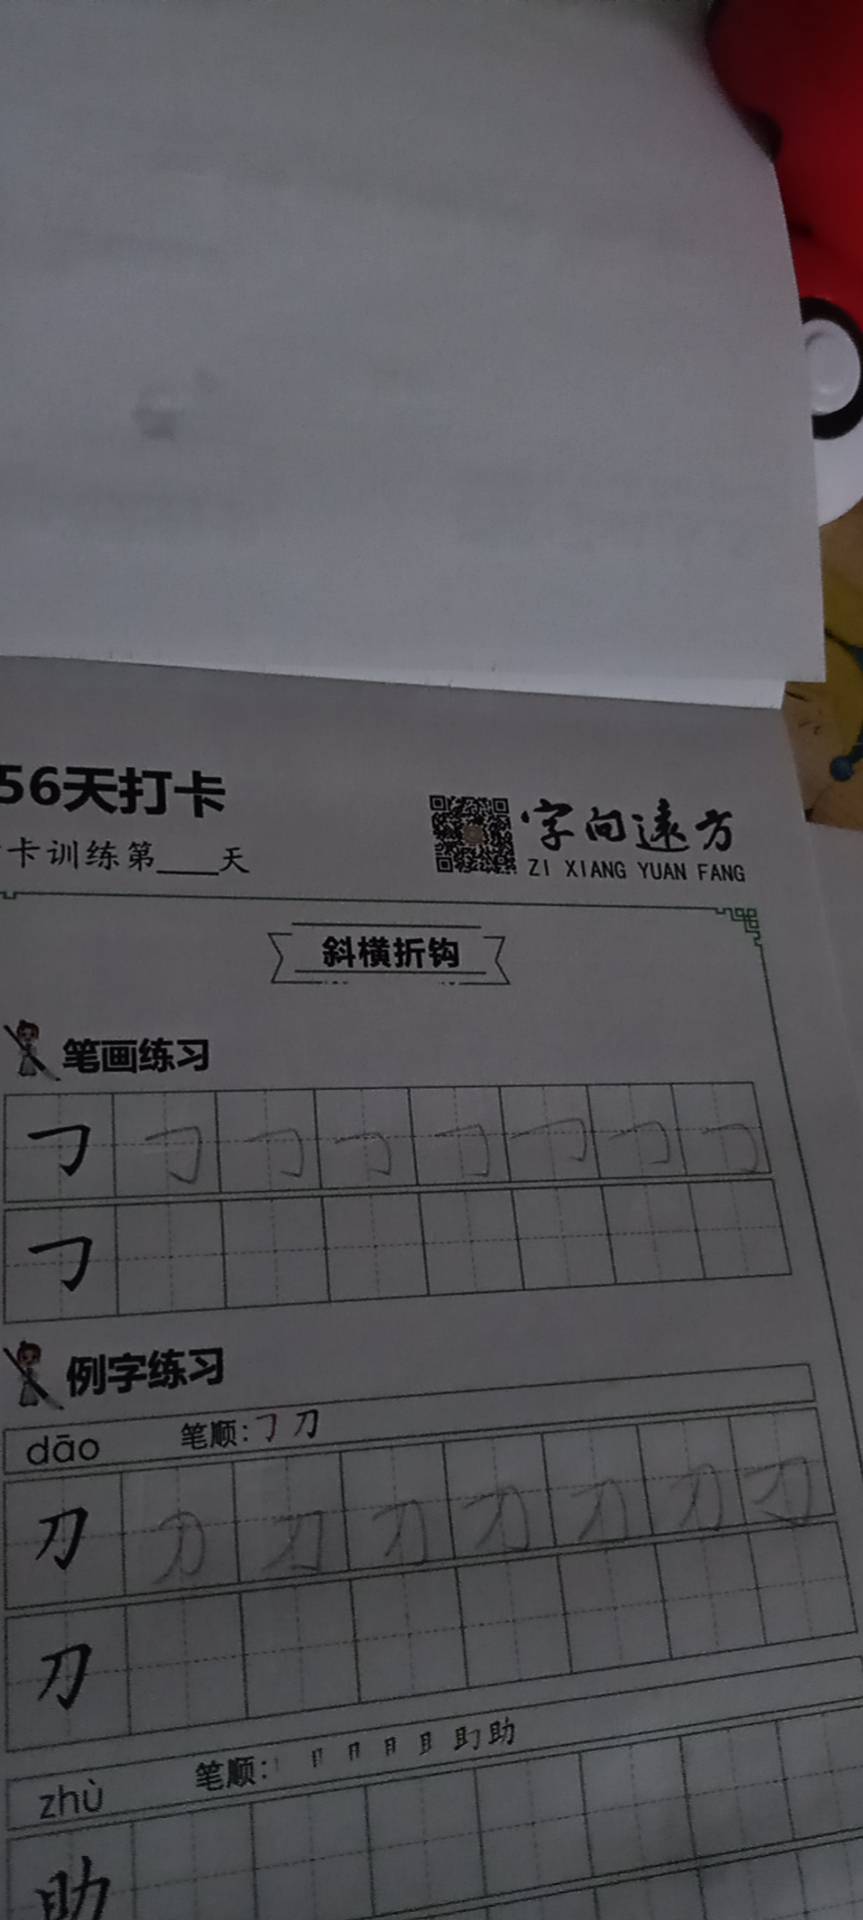 56天打卡
卡训练第____天
字向远方
ZI XIANG YUAN FANG
斜横折钩
笔画练习
㇆ ㇆ ㇆ ㇆ ㇆ ㇆ ㇆ ㇆
㇆
例字练习
dāo 笔顺:㇆ 刀
刀 刀 刀 刀 刀 刀 刀 刀
刀
zhù 笔顺:
助